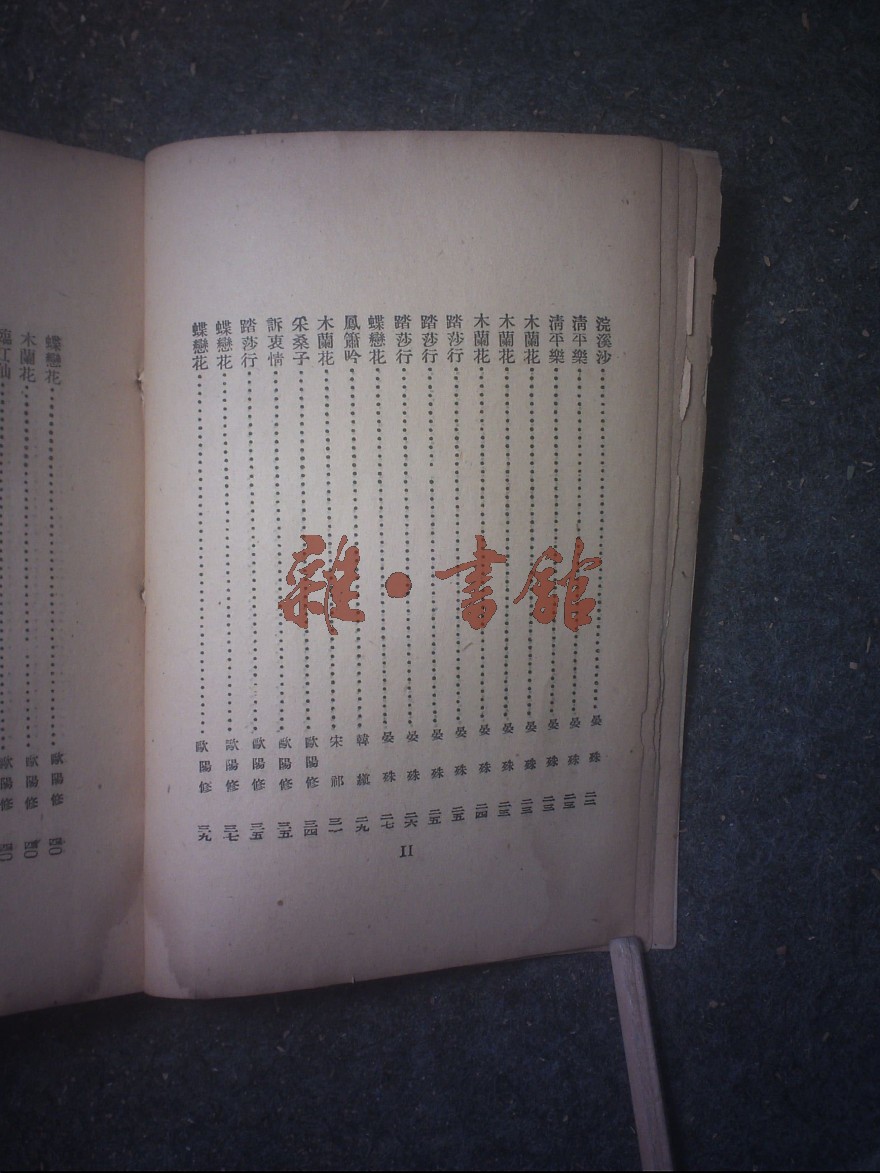 浣溪沙……晏殊 二二
淸平樂……晏殊 二三
淸平樂……晏殊 二三
木蘭花……晏殊 二三
木蘭花……晏殊 二三
木蘭花……晏殊 二四
踏莎行……晏殊 二五
踏莎行……晏殊 二五
踏莎行……晏殊 二六
蝶戀花……晏殊 二七
鳳簫吟……韓縝 二九
木蘭花……宋祁 三一
采桑子……歐陽修 三四
訴衷情……歐陽修 三五
踏莎行……歐陽修 三五
蝶戀花……歐陽修 三七
蝶戀花……歐陽修 三九
II
蝶戀花……歐陽修 四〇
木蘭花……歐陽修 四〇
臨江仙……歐陽修 四〇
雜·書館